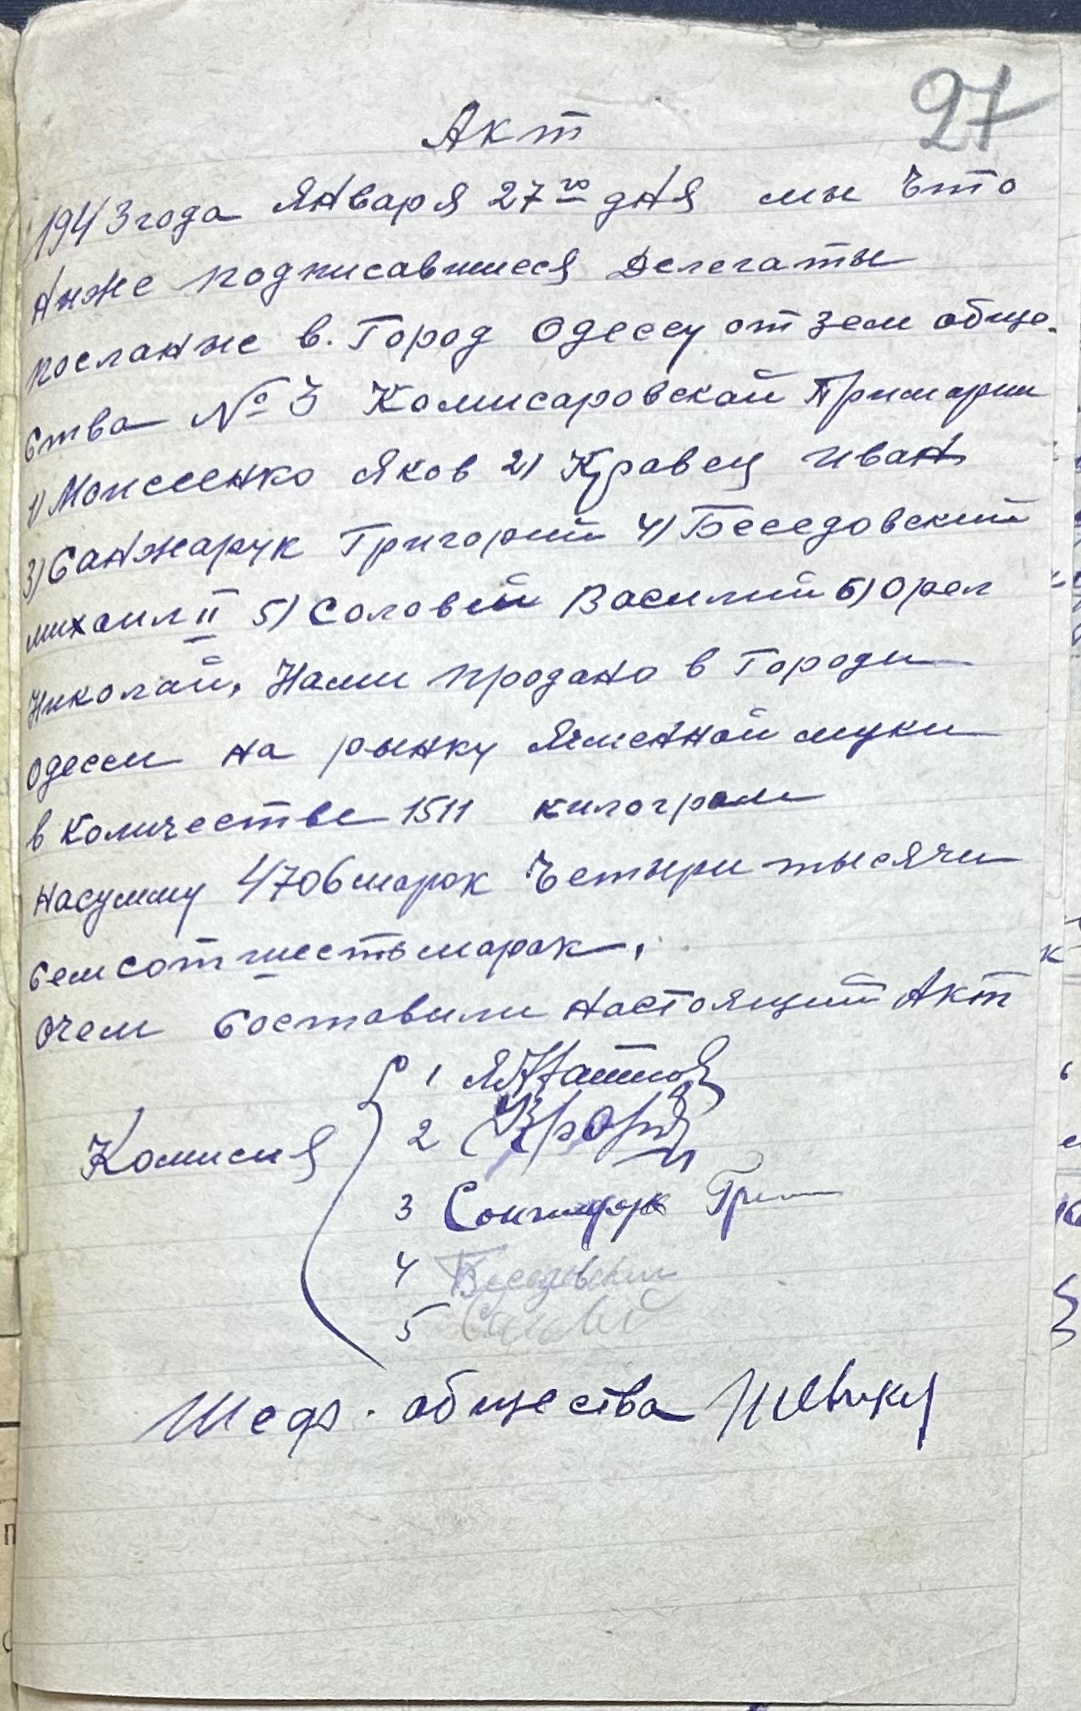 27
Акт
1943 года Января 27го дня мы Что
Ниже подписавшиеся Делегаты
посланые в. Город Одессу от зем обще-
ства № 3 Комисаровской Примарии
1) Моисеенко Яков 2) Кравец Иван
3) Санжарук Григорий 4) Беседовский
михаил II 5) Соловей Василий 6) Орел
Николай, Нами продано в Городи
Одесси на рынку Ячменной муки
в Количестве 1511 килограм
на сумму 4706 марок Четыри тысячи
семсот шесть марок,
Очем Составили настоящий Акт
Комисия
1
2
3 Сонжарук Гри
4 Беседовский
5 Соловей
Шеф. общества